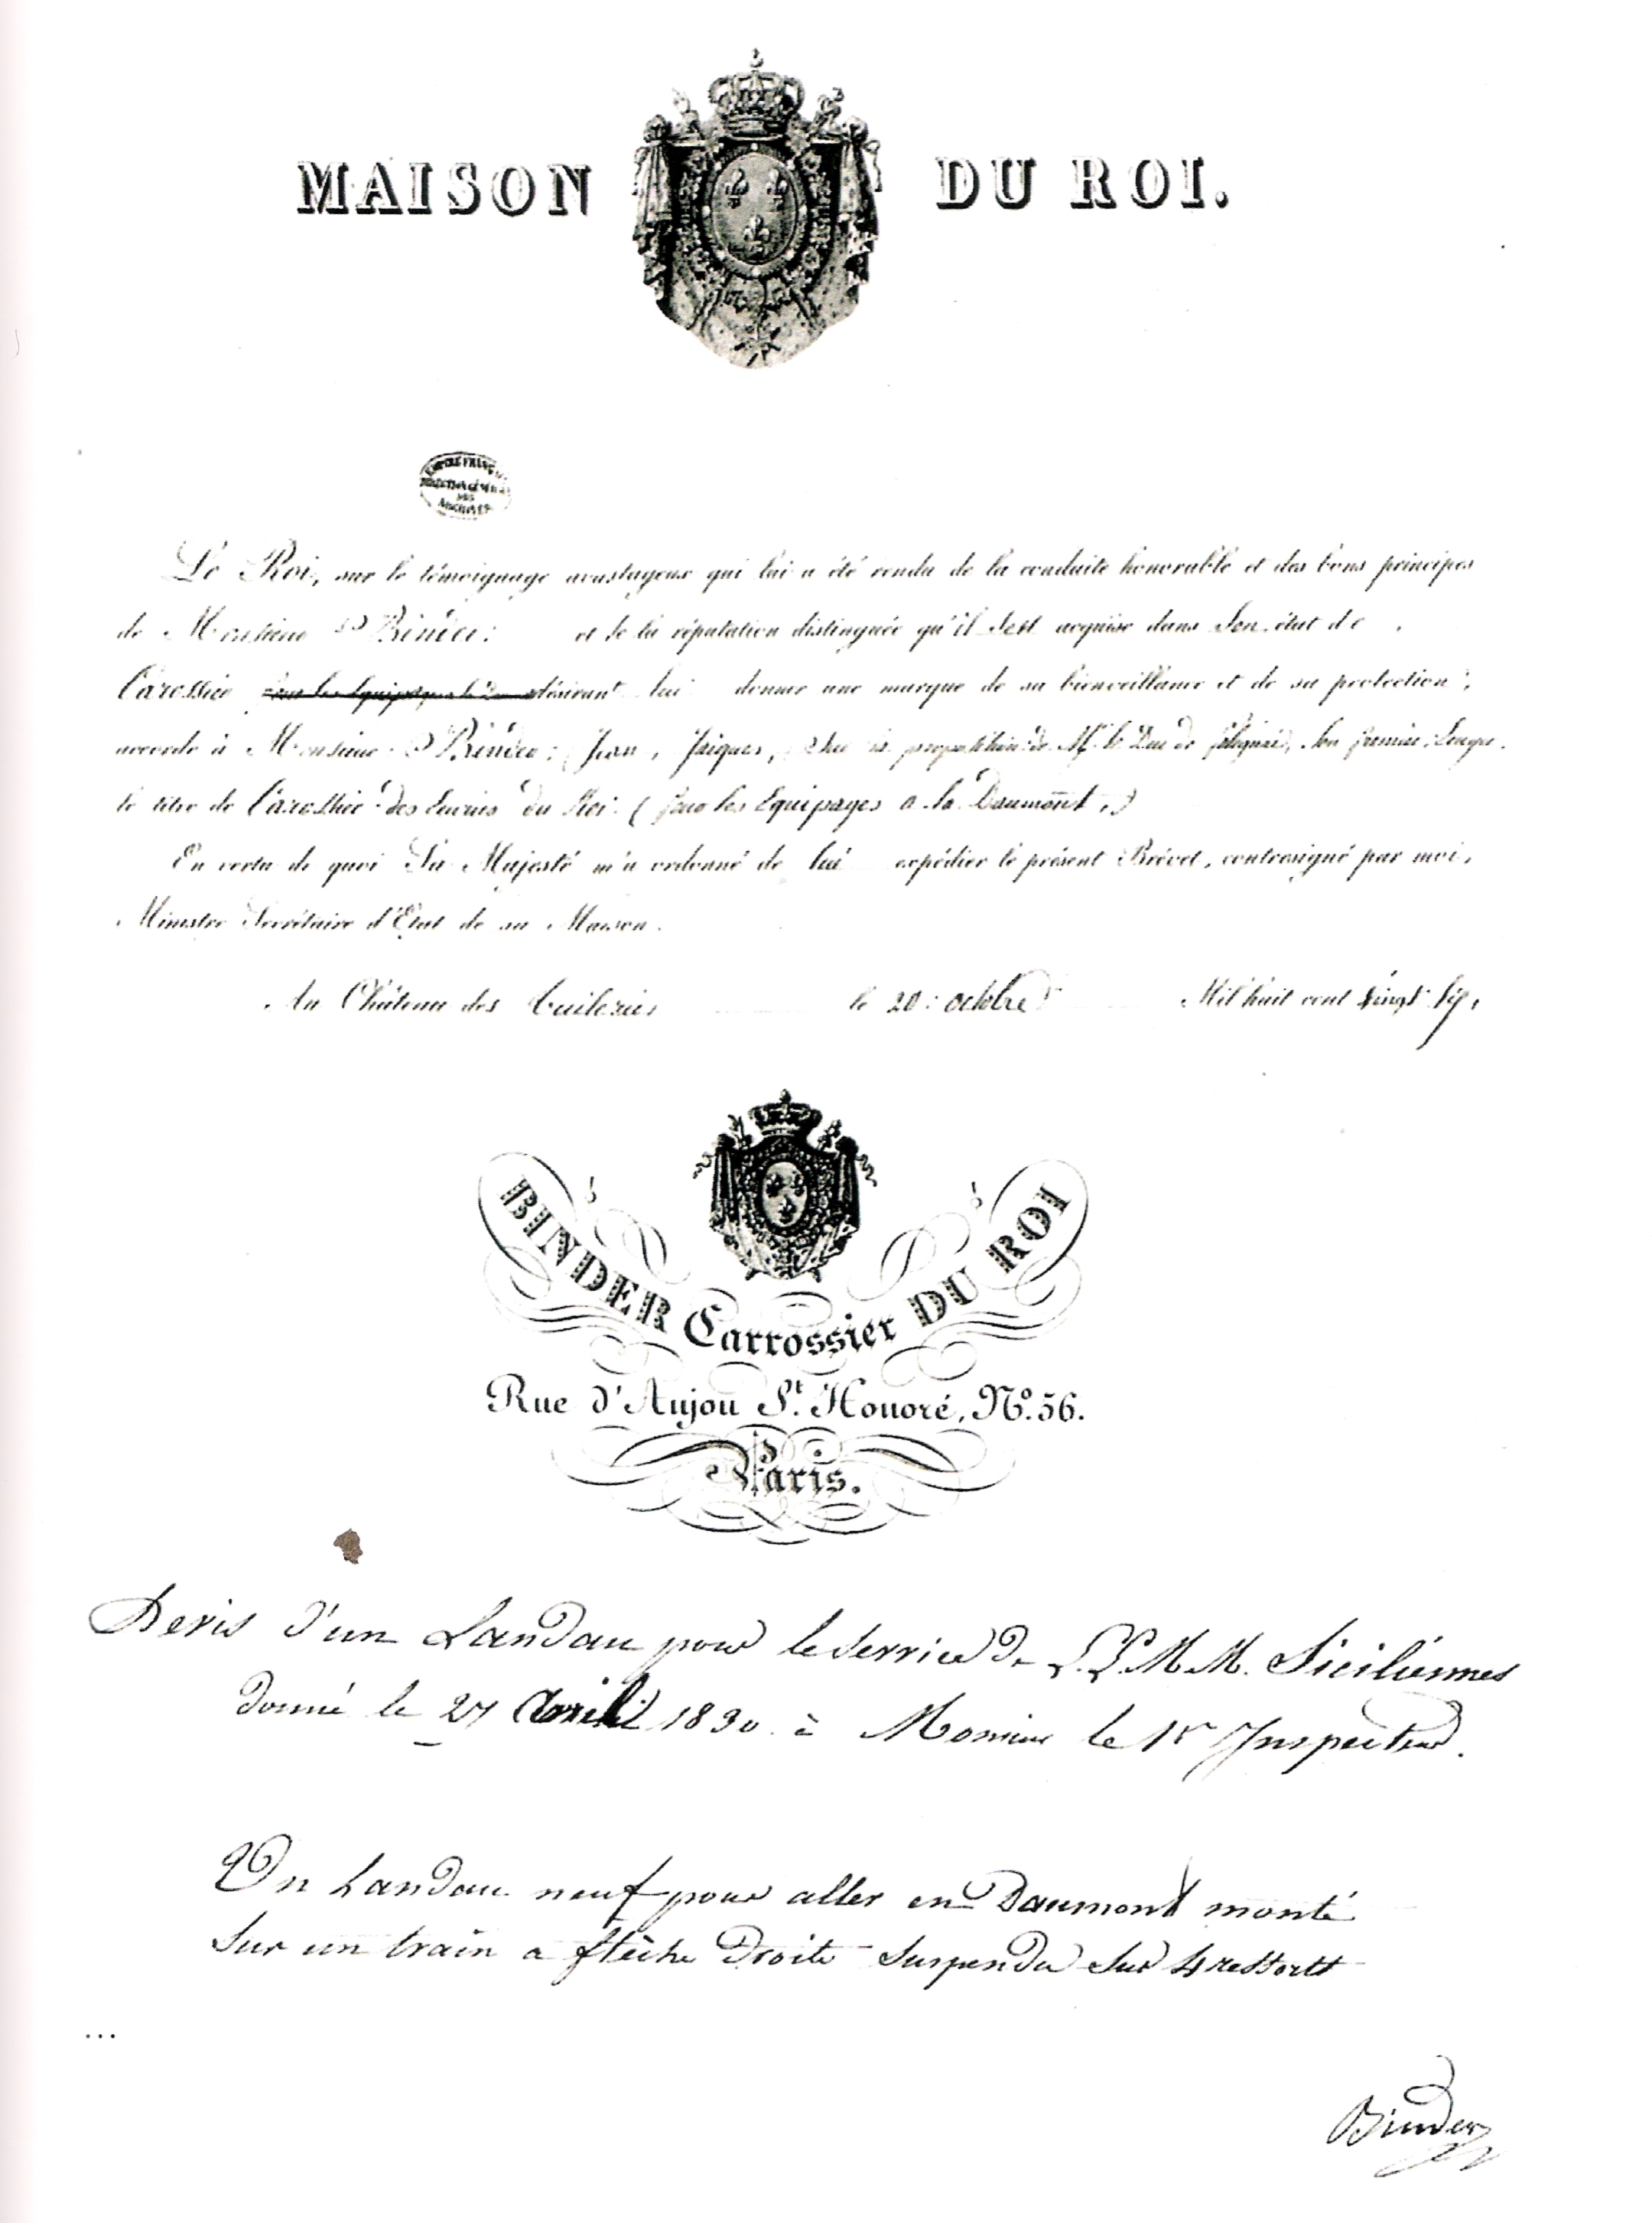 MAISON DU ROI.
EMPIRE FRANÇ
DIRECTION GÉNÉR
DES
ARCHIVES
Le Roi, sur le témoignage avantageux qui lui a été rendu de la conduite honorable et des bons principes
de Monsieur Binder: et de la réputation distinguée qu'il s'est acquise dans Son état de
Carossier désirant lui donner une marque de sa bienveillance et de sa protection,
accorde à Monsieur Binder: Jean, Jacques, Sur la proposition de Mr. le Duc de Son premier Ecuyer.
le titre de Carossier des Ecuries du Roi. (pour les Equipages a la Daumont,)
En vertu de quoi Sa Majesté m'a ordonné de lui expédier le présent Brévet, contresigné par moi,
Ministre Secrétaire d'Etat de sa Maison.
Au Château des Tuileries le 20: octobre Mil huit cent vingt
BINDER Carrossier DU ROI
Rue d'Anjou St. Honoré, No. 56.
Paris.
Devis d'un Landau pour le Service de L.L.M.M. Siciliennes
donné le 27 Avril 1830 à Monsieur le 1r Inspecteur.
Un Landau neuf pour aller en Daumont monté
Sur un train a flèche Droite Suspendu Sur 4 ressorts
...
Binder